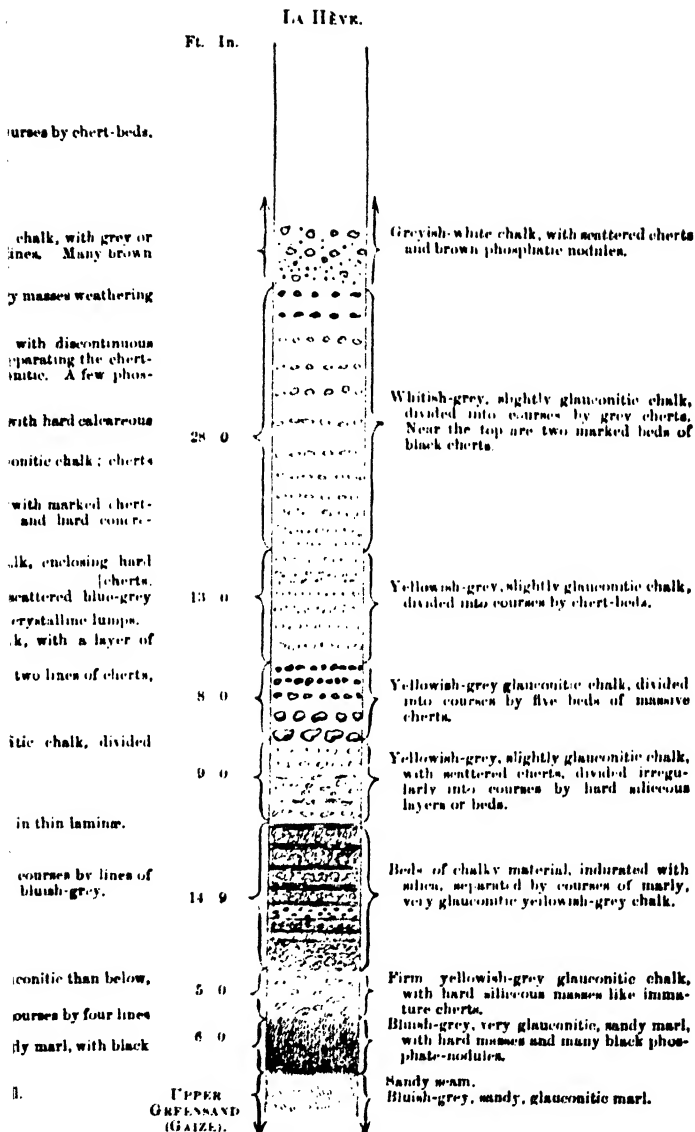 LA HÈVE.
Ft. In.
ourses by chert-beds.
chalk, with grey or
lines. Many brown
y masses weathering
with discontinuous
eparating the chert-
onitic. A few phos-
with hard calcareous
onitic chalk; cherts
with marked chert-
and hard concre-
alk, enclosing hard
[cherts.
scattered blue-grey
crystalline lumps.
k, with a layer of
two lines of cherts,
itic chalk, divided
in thin laminæ.
courses by lines of
bluish-grey.
conitic than below,
ourses by four lines
dy marl, with black
l.
28 0
13 0
8 0
9 0
14 9
5 0
6 0
UPPER
GREENSAND
(GAIZE).
Greyish-white chalk, with scattered cherts
and brown phosphatic nodules.
Whitish-grey, slightly glauconitic chalk,
divided into courses by grey cherts.
Near the top are two marked beds of
black cherts.
Yellowish-grey, slightly glauconitic chalk,
divided into courses by chert-beds.
Yellowish-grey glauconitic chalk, divided
into courses by five beds of massive
cherts.
Yellowish-grey, slightly glauconitic chalk,
with scattered cherts, divided irregu-
larly into courses by hard siliceous
layers or beds.
Beds of chalky material, indurated with
silica, separated by courses of marly,
very glauconitic yellowish-grey chalk.
Firm yellowish-grey glauconitic chalk,
with hard siliceous masses like imma-
ture cherts.
Bluish-grey, very glauconitic, sandy marl,
with hard masses and many black phos-
phate-nodules.
Sandy seam.
Bluish-grey, sandy, glauconitic marl.